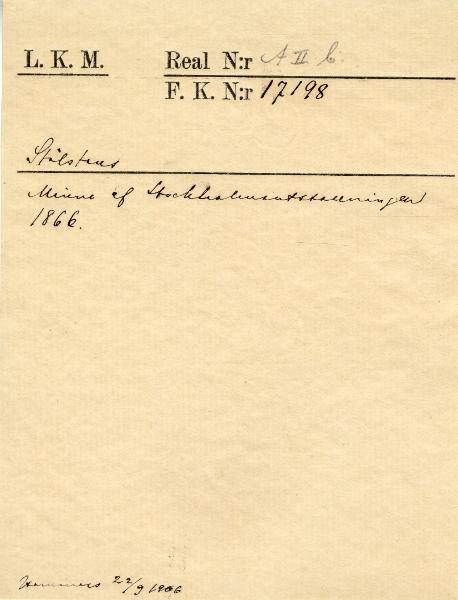 L. K. M. Real N:r A II b.
F. K. N:r 17198
Stålstans
Minne af Stockholmsutställningen
1866.
Hammers 22/9 1906